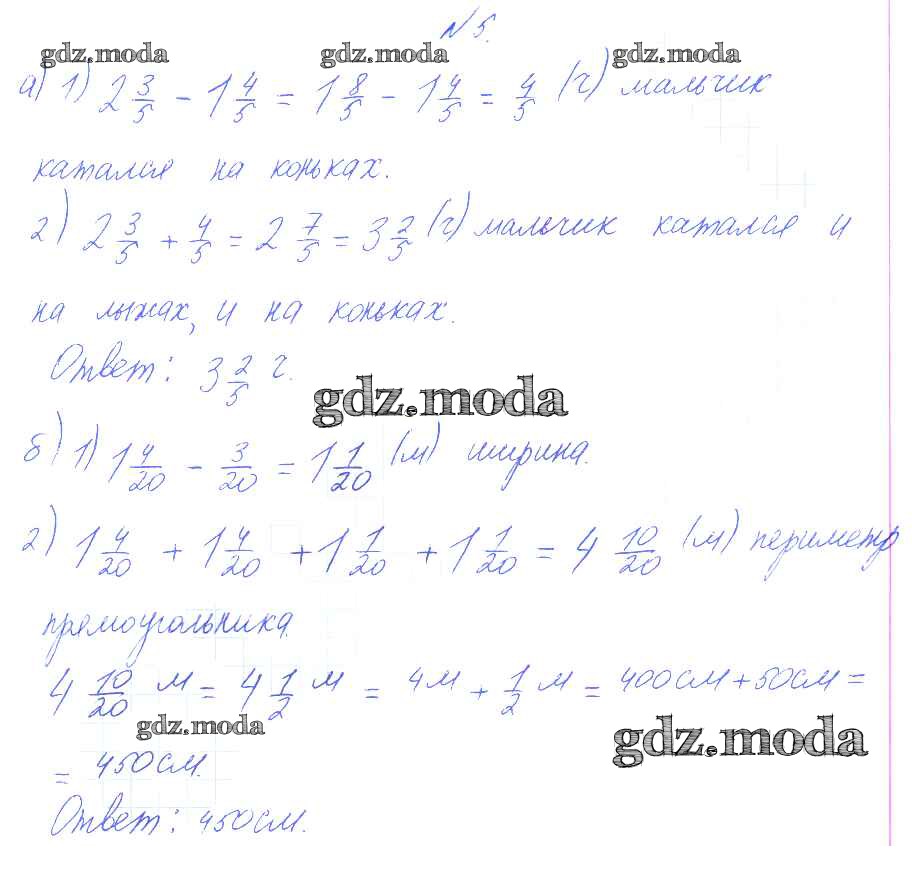 № 5.
gdz.moda gdz.moda gdz.moda
а) 1) 2 3/5 - 1 4/5 = 1 8/5 - 1 4/5 = 4/5 (ч) мальчик
катался на коньках.
2) 2 3/5 + 4/5 = 2 7/5 = 3 2/5 (ч) мальчик катался и
на лыжах, и на коньках.
Ответ: 3 2/5 ч.
gdz.moda
б) 1) 1 4/20 - 3/20 = 1 1/20 (м) ширина.
2) 1 4/20 + 1 4/20 + 1 1/20 + 1 1/20 = 4 10/20 (м) периметр
прямоугольника.
4 10/20 м = 4 1/2 м = 4м + 1/2 м = 400см + 50см =
gdz.moda gdz.moda
= 450см.
Ответ: 450см.